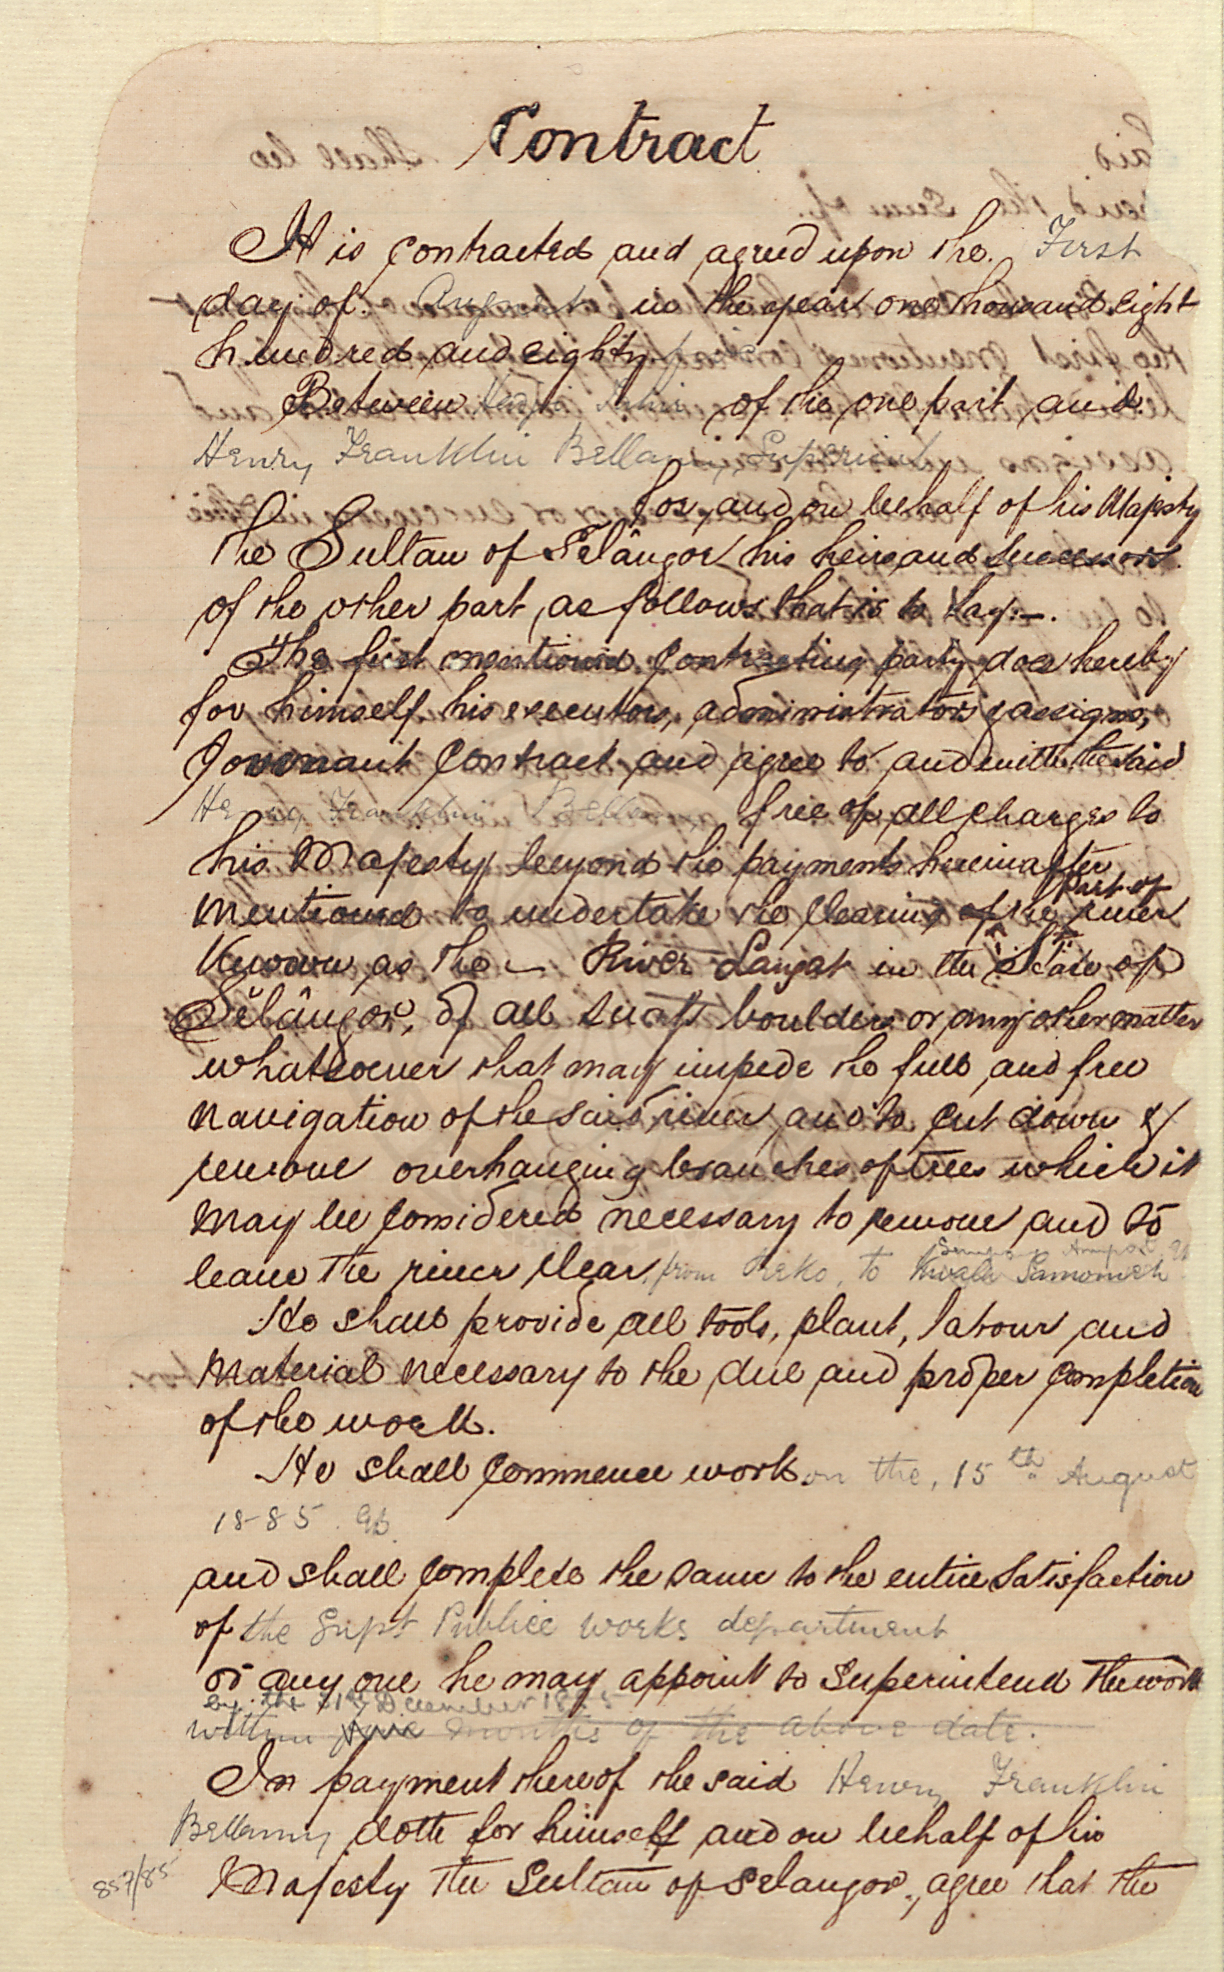 Contract
It is contracted and agreed upon the First
day of August in the year one thousand eight
hundred and eighty five
Between Hadji of the one part and
Henry Franklin Bellamy
for, and on behalf of his Majesty
the Sultan of Selângor his heirs and successors
of the other part, as follows that is to say:—.
The first mentioned contracting party does hereby
for himself, his executors, administrators & assigns,
Covenant Contract and agree to and with the said
Henry Franklin Bellamy free of all charges to
his Majesty beyond the payments hereinafter
part of
mentioned to undertake the clearing of the river
Known as the — River Langat in the State of
Sĕlângor, of all snags boulders or any other matter
whatsoever that may impede the full and free
navigation of the said river, and to cut down &
remove overhanging branches of trees which it
may be considered necessary to remove and to
leave the river clear, from Reko, to Kwala
He shall provide all tools, plant, labour and
material necessary to the due and proper completion
of the work.
He shall commence work on the, 15th August
1885.
and shall complete the same to the entire satisfaction
of the Supt Public works department
or any one he may appoint to superintend the work
by the 31st December 1885
within five months of the above date.
In payment thereof the said Henry Franklin
Bellamy doth for himself and on behalf of his
Majesty the Sultan of Selangor, agree that the
857/85